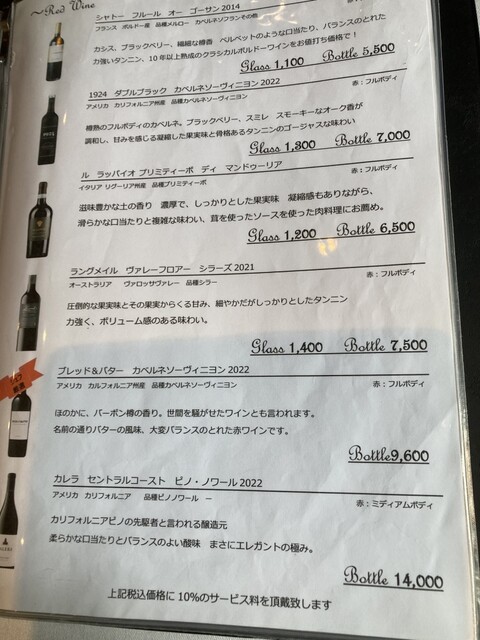 ~Red Wine
シャトー フルール オー ゴーサン 2014
フランス ボルドー産 品種メルロー カベルネソーフランその他
カシス、ブラックベリー、繊細な樽香 ベルベットのような口当たり、バランスのとれた
力強いタンニン、10年以上熟成のクラシカルボルドーワインをお値打ち価格で！
Glass 1,100 Bottle 5,500
1924 ダブルブラック カベルネソーヴィニヨン 2022
アメリカ カリフォルニア州産 品種カベルネソーヴィニヨン 赤：フルボディ
樽熟のフルボディのカベルネ。ブラックベリー、スミレ スモーキーなオーク香が
調和し、甘みを感じる凝縮した果実味と骨格あるタンニンのゴージャスな味わい
Glass 1,300 Bottle 7,000
ル ラッパイオ プリミティーボ ディ マンドゥーリア
イタリア リグーリア州産 品種プリミティーボ 赤：フルボディ
滋味豊かな土の香り 濃厚で、しっかりとした果実味 凝縮感もありながら、
滑らかな口当たりと複雑な味わい、茸を使ったソースを使った肉料理にお薦め。
Glass 1,200 Bottle 6,500
ラングメイル ヴァレーフロアー シラーズ 2021
オーストラリア ヴァロッサヴァレー 品種シラー 赤：フルボディ
圧倒的な果実味とその果実からくる甘み、細やかだがしっかりとしたタンニン
力強く、ボリューム感のある味わい。
Glass 1,400 Bottle 7,500
ブレッド&バター カベルネソーヴィニヨン 2022
アメリカ カルフォルニア州産 品種カベルネソーヴィニヨン 赤：フルボディ
ほのかに、バーボン樽の香り。世間を騒がせたワインとも言われます。
名前の通りバターの風味、大変バランスのとれた赤ワインです。
Bottle9,600
カレラ セントラルコースト ピノ・ノワール 2022
アメリカ カリフォルニア 品種ピノノワール ー 赤：ミディアムボディ
カリフォルニアピノの先駆者と言われる醸造元
柔らかな口当たりとバランスのよい酸味 まさにエレガントの極み。
Bottle 14,000
上記税込価格に10%のサービス料を頂戴致します